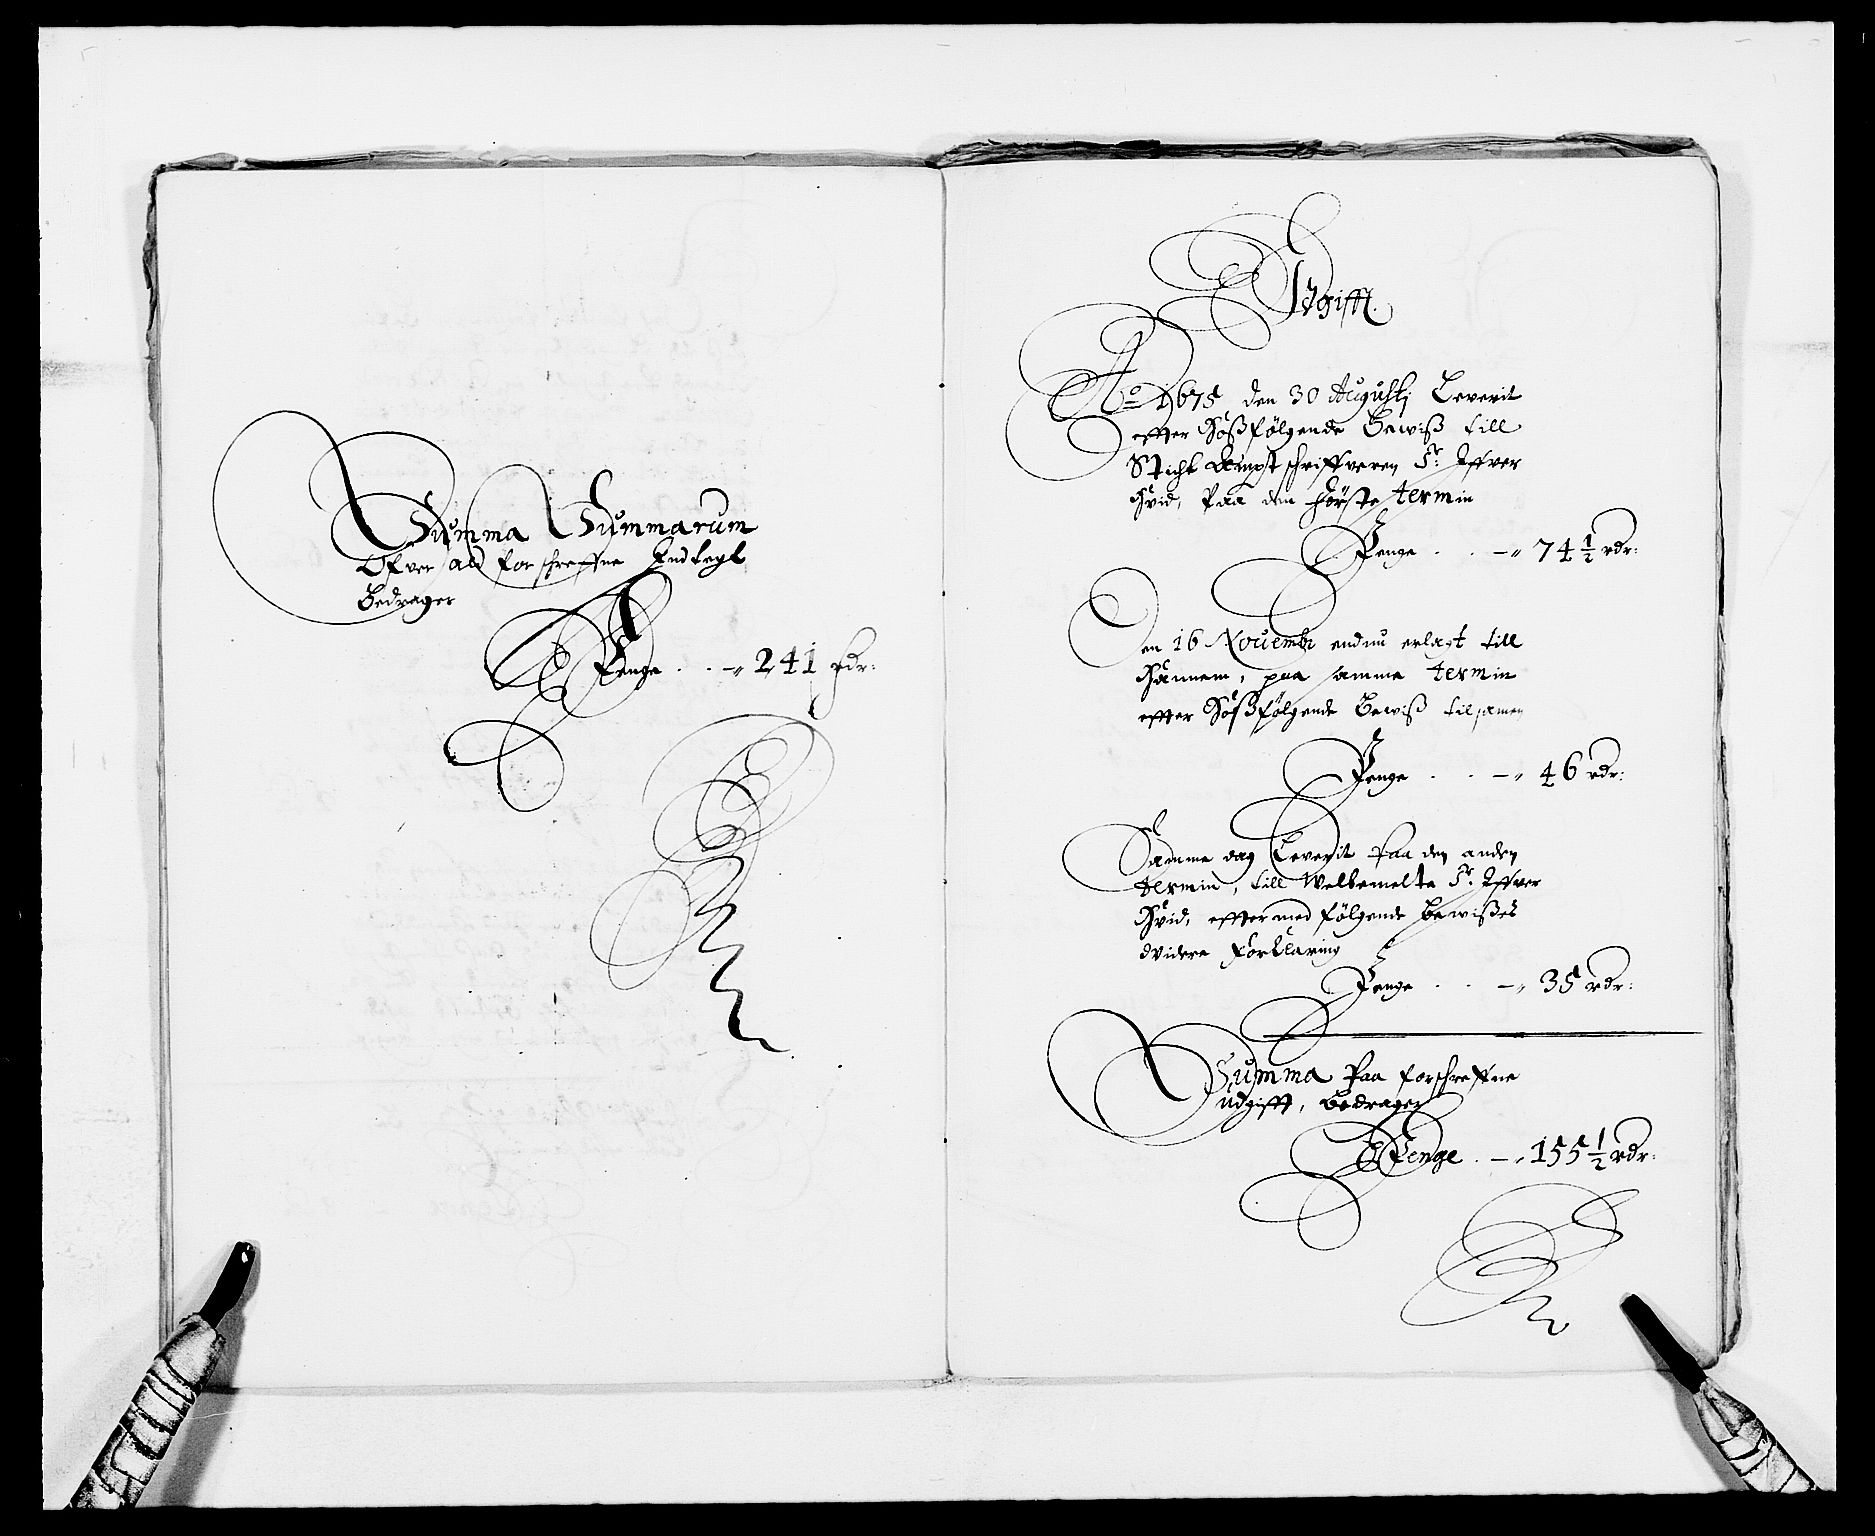 Summa Summarum
Ofver ald forschreffne Indtegt
Bedrager
Penge . . -„ 241 rdr:
Udgifft.
Ao 1675 den 30 Augustj Leverit
effter Hoßfølgende Bewiß till
Sticht Ampt schriffveren Sr: Iffver
Hvid, Paa den første termin
Penge . . -„ 74 1/2 rdr:
Den 16 Novembr endnu erlagt till
Hannem, paa samme termin
effter Hoßfølgende Bewiß tilsamen
Penge . . -„ 46 rdr:
Samme dag Leverit Paa den anden
termin, till Welbemelte Sr: Iffver
Hvid, effter med følgende bewißes
videre Forklaring
Penge . . -„ 35 rdr:
Summa Paa forschreffne
udgifft, Bedrager
Penge . -„ 155 1/2 rdr: